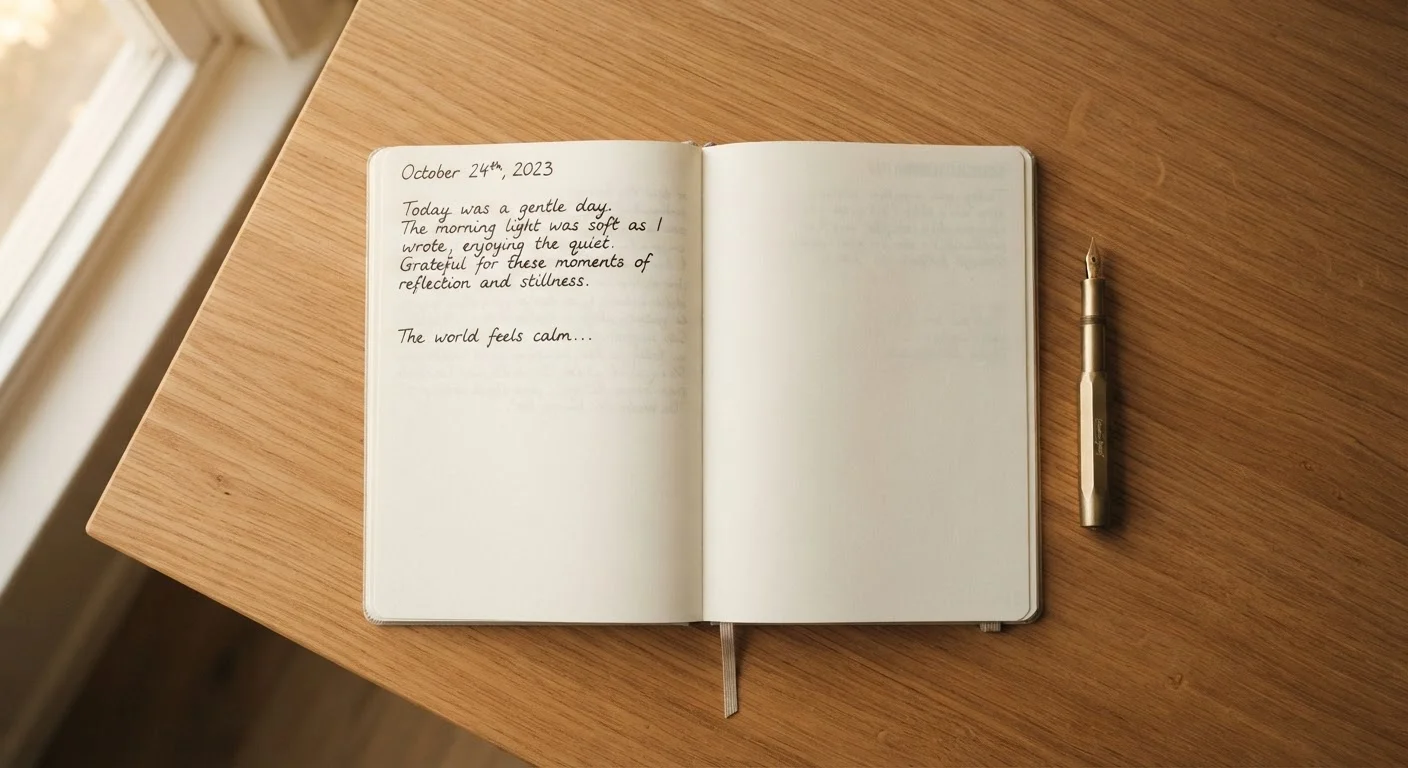 October 24th, 2023
Today was a gentle day.
The morning light was soft as I
wrote, enjoying the quiet.
Grateful for these moments of
reflection and stillness.
The world feels calm...